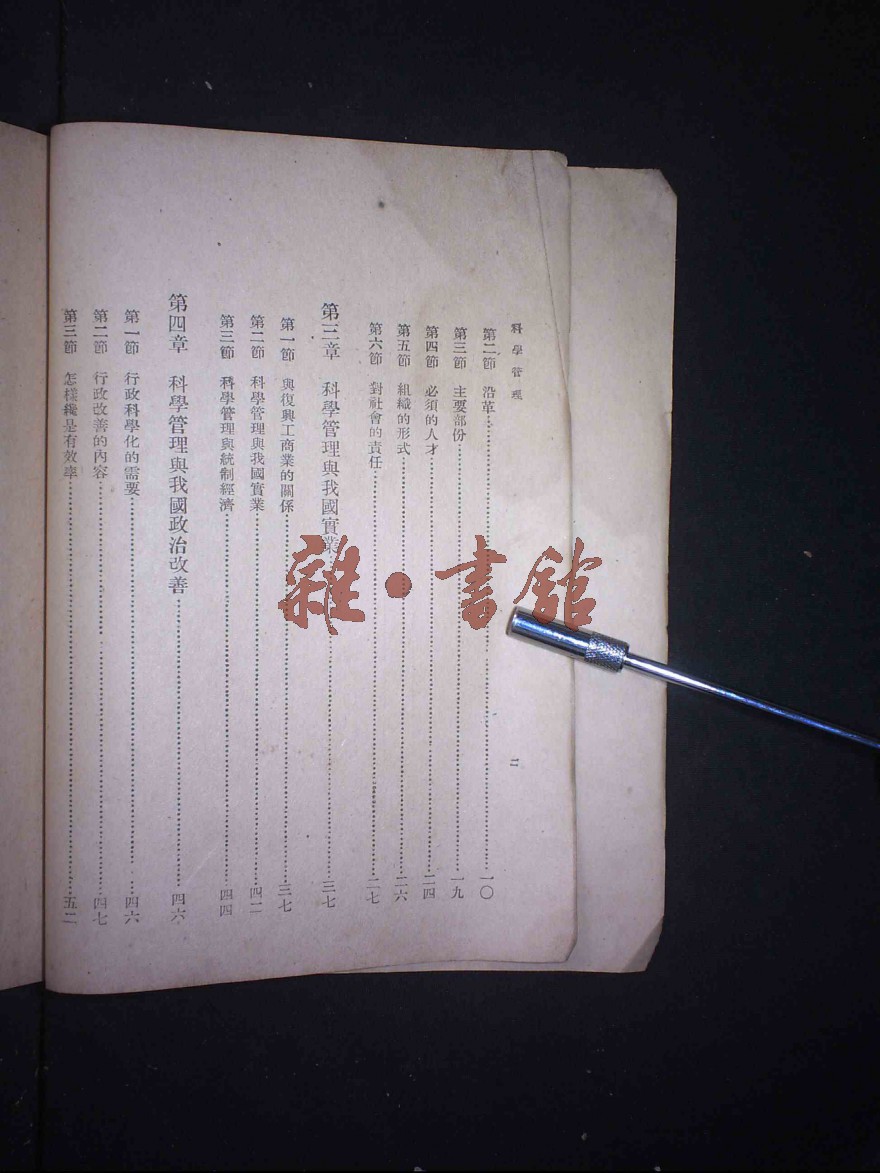 科學管理
二
第二節 沿革……一〇
第三節 主要部份……一九
第四節 必須的人才……二四
第五節 組織的形式……二六
第六節 對社會的責任……二七
第三章 科學管理與我國實業……三七
第一節 與復興工商業的關係……三七
第二節 科學管理與我國實業……四二
第三節 科學管理與統制經濟……四四
第四章 科學管理與我國政治改善……四六
第一節 行政科學化的需要……四六
第二節 行政改善的內容……四七
第三節 怎樣纔是有效率……五二
雜·書館